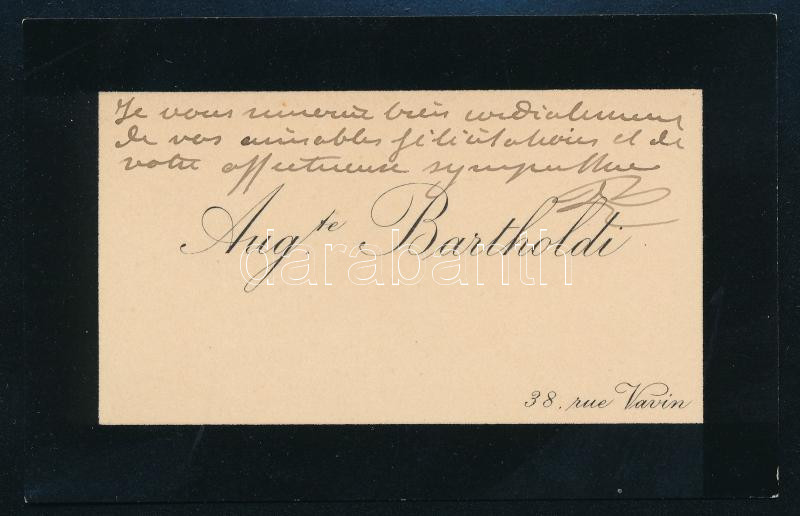 Je vous remercie bien cordialement
de vos aimables félicitations et de
votre affectueuse sympathie
Aug.te Bartholdi
darabanth
38. rue Vavin